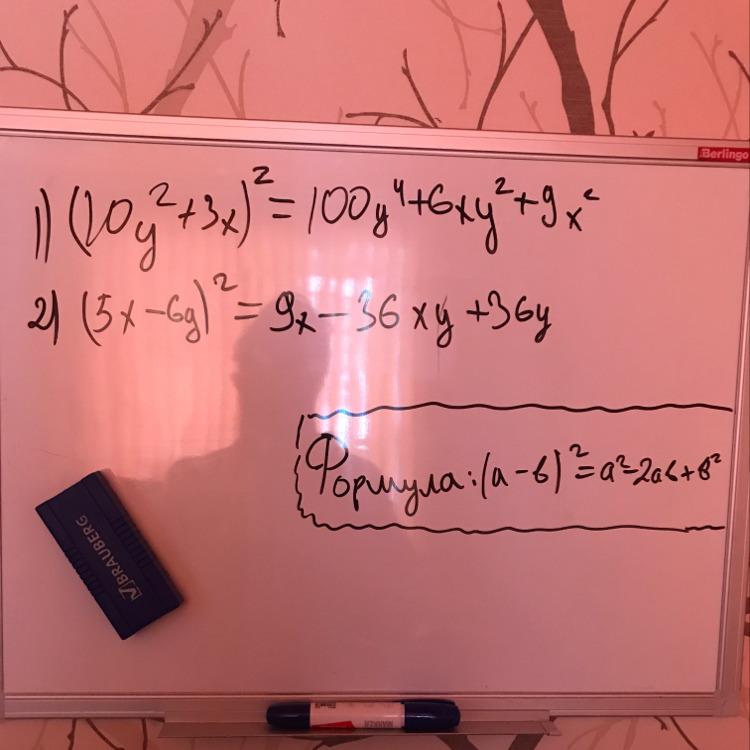 Berlingo
1) (10y²+3x)²=100y⁴+6xy²+9x²
2) (5x-6y)²=9x-36xy+36y
Формула: (a-b)²=a²-2ab+b²
BRAUBERG
MARKER